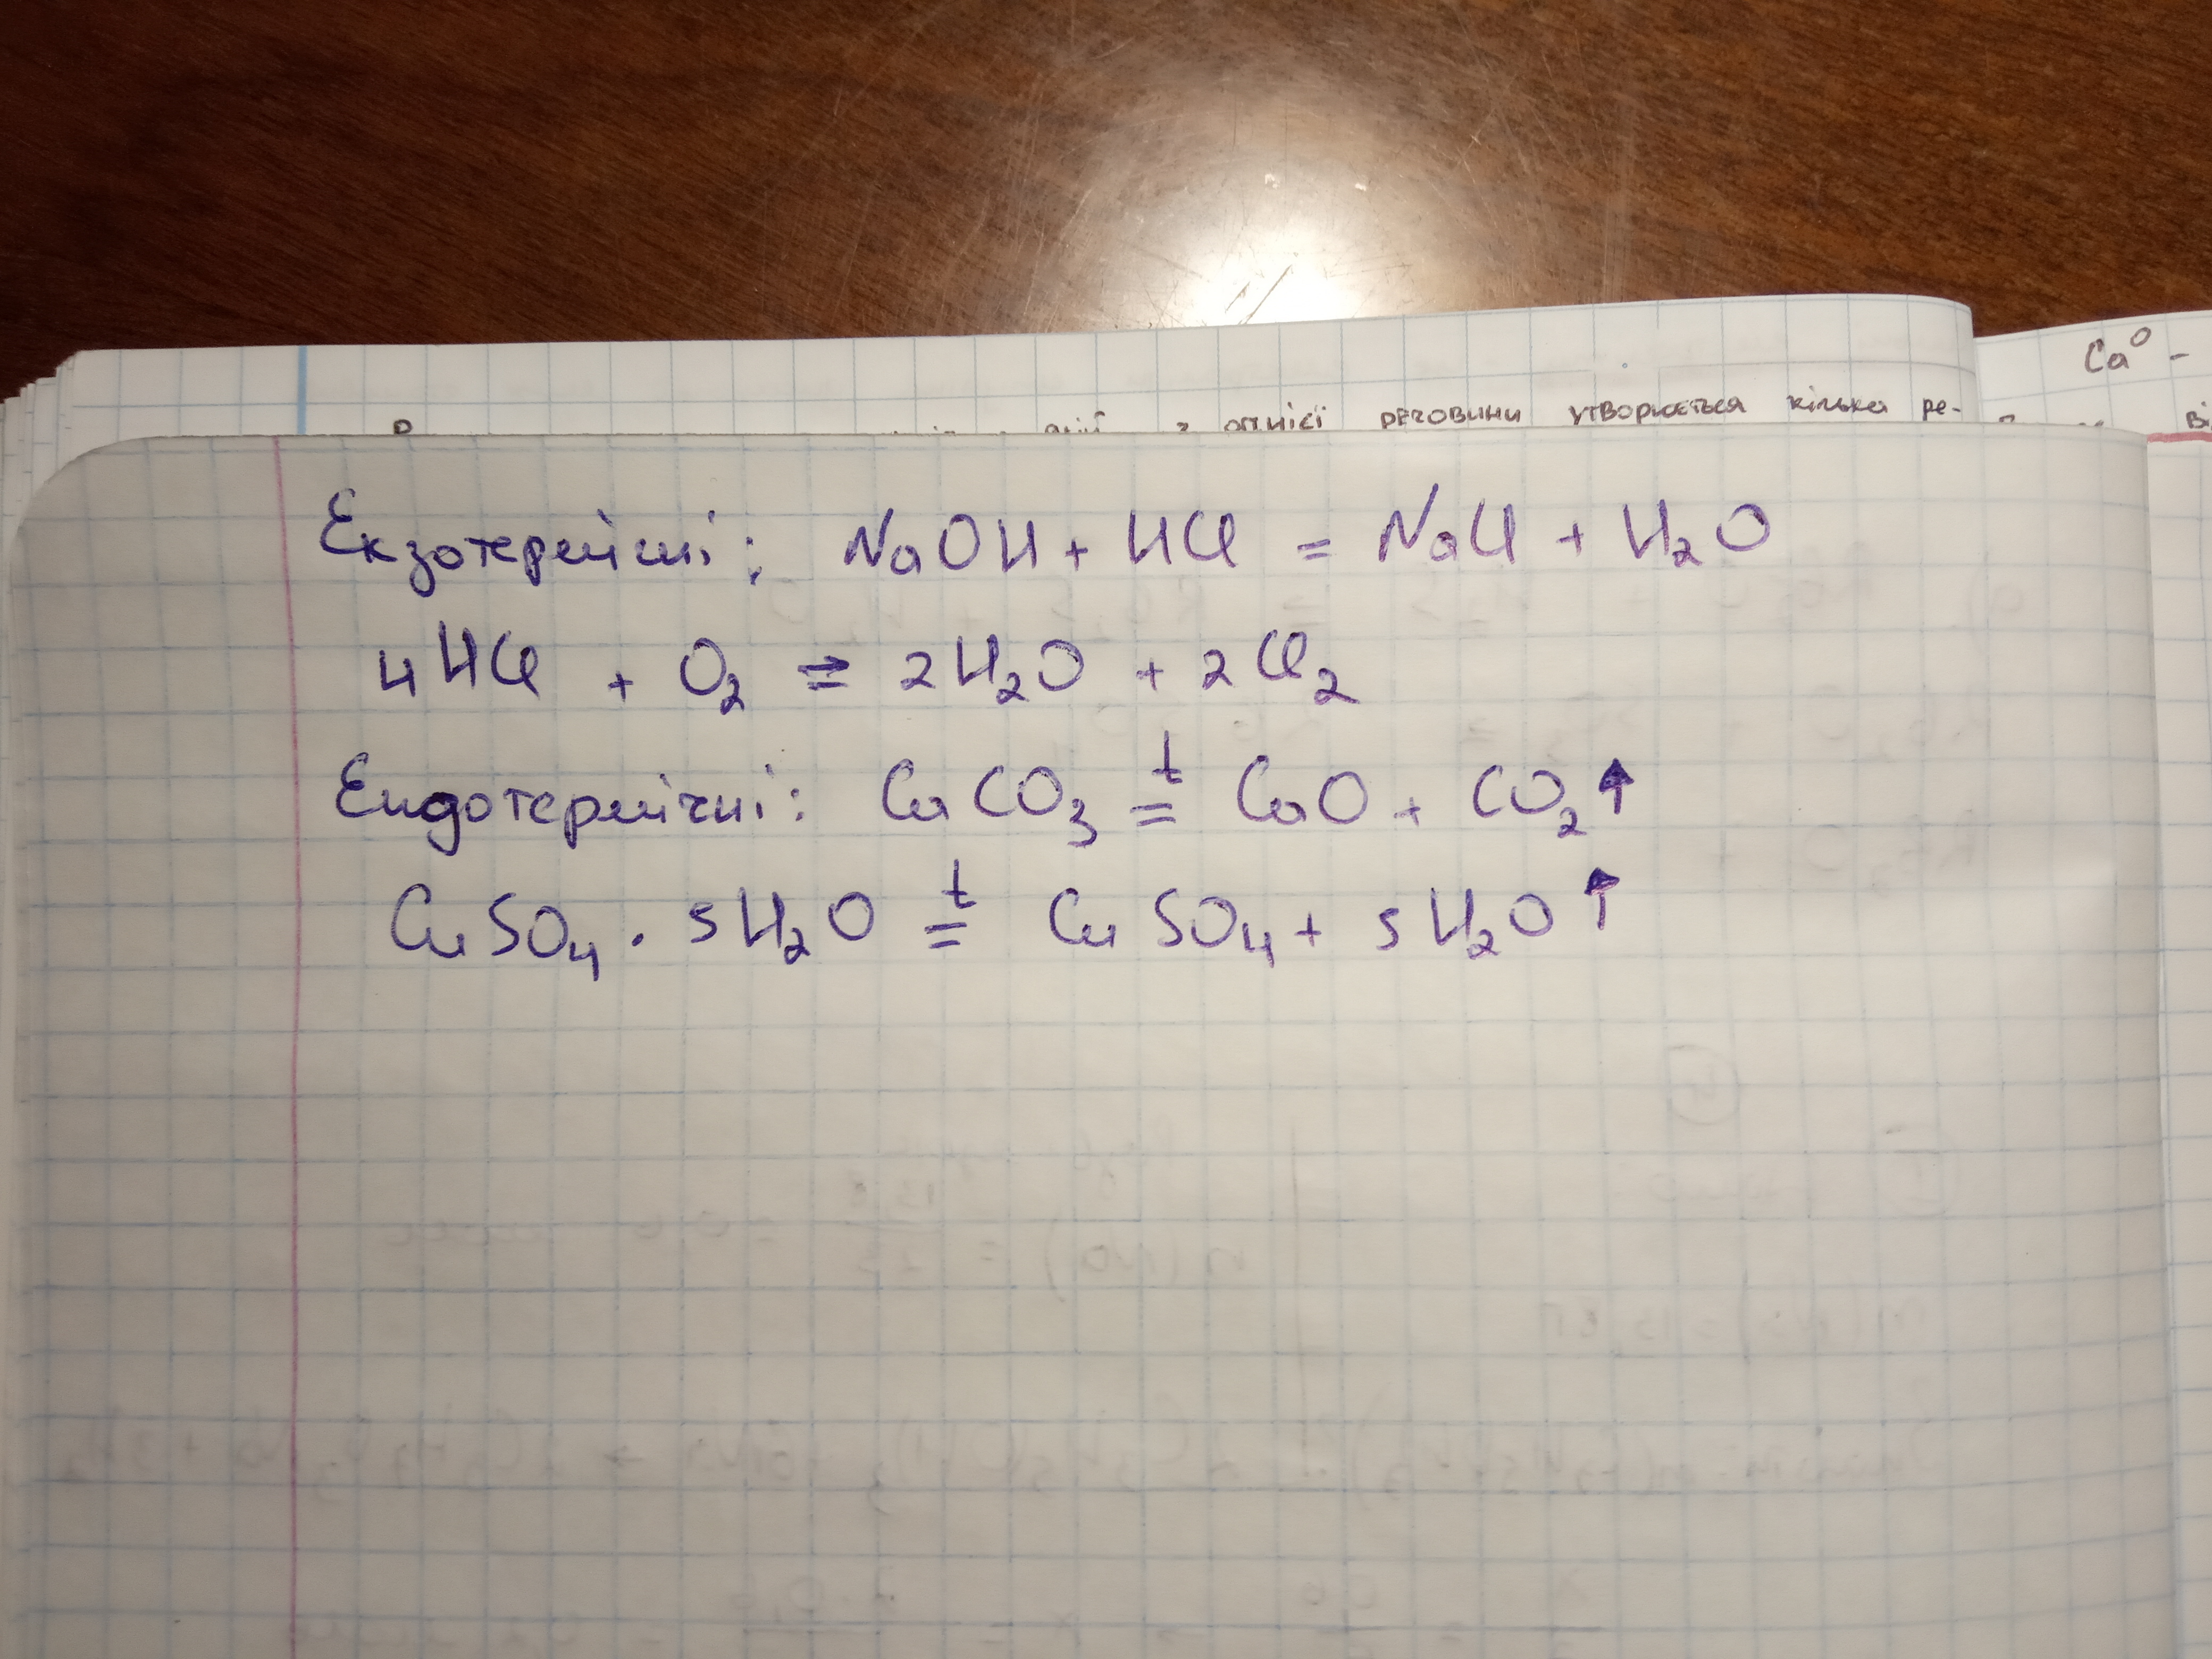 Ca⁰ -
речовини утворюється кілька ре-
Екзотермічні: NaOH + HCl = NaCl + H₂O
4HCl + O₂ ⇌ 2H₂O + 2Cl₂
Ендотермічні: CaCO₃ =ᵗ CaO + CO₂↑
CuSO₄ · 5H₂O =ᵗ CuSO₄ + 5H₂O↑